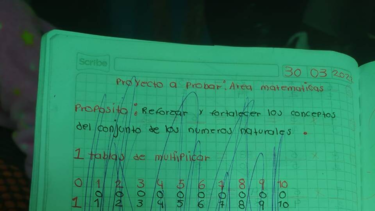 Scribe
30 03 2021
Proyecto a Probar: Área matematicas
Proposito: Reforzar y fortalecer los conceptos
del conjunto de los numeros naturales.
1 tablas de multiplicar
0 1 2 3 4 5 6 7 8 9 10
0 0 0 0 0 0 0 0 0 0
1 1 2 3 4 5 6 7 8 9 10